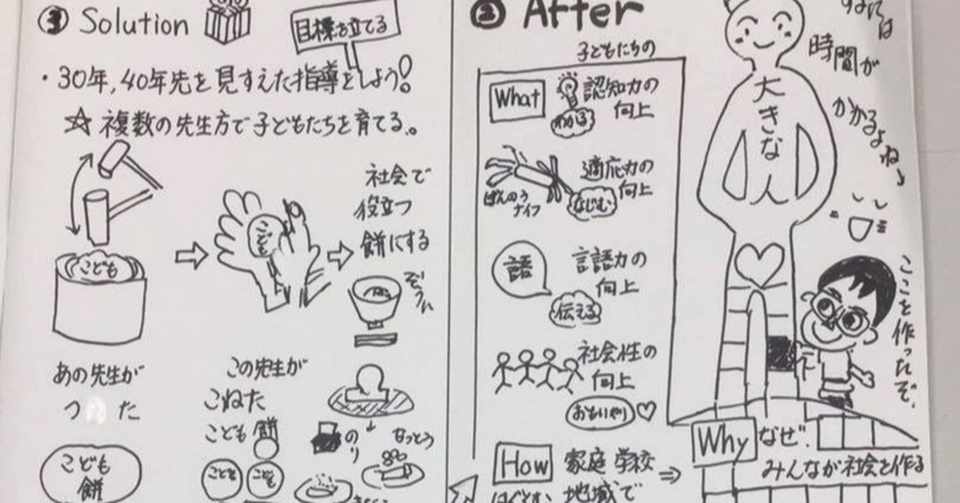 ③ Solution
目標を立てる
・30年,40年先を見すえた指導をしよう!
☆ 複数の先生方で子どもたちを育てる。
こども
こども
社会で
役立つ
餅にする
ぞうに
あの先生が
つ
た
こども
餅
この先生が
こねた
こども餅
こども
こども
のり
なっとう
② After
子どもたちの
What
わかる
認知力の
向上
ばんのう
ナイフ
なじむ
適応力の
向上
語
伝える
言語力の
向上
社会性の
向上
おもいやり
How
家庭 学校
はぐくむ
地域で
大きな人
時間が
かかるよね
ここを作ったぞ。
Why
なぜ
みんなが社会を作る